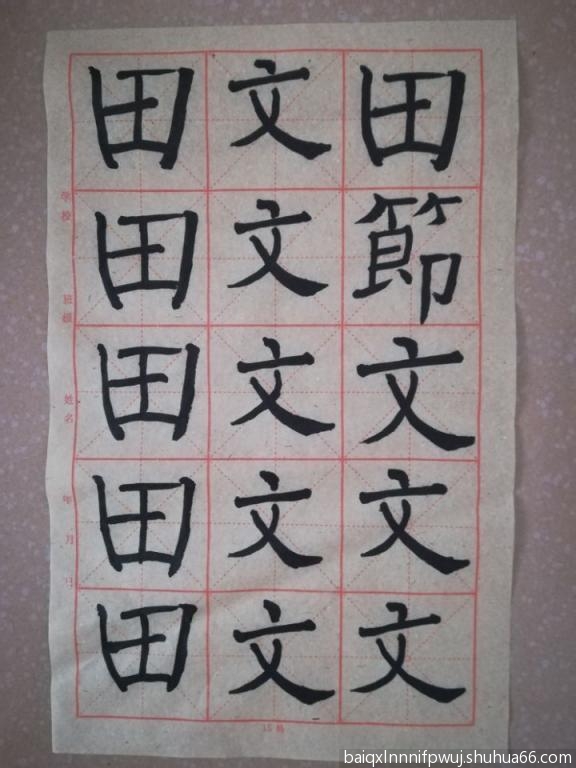 田節文文文
文文文文文
田田田田田
学校 班级 姓名 年 月 日
15格
baiqxlnnnifpwuj.shuhua66.com